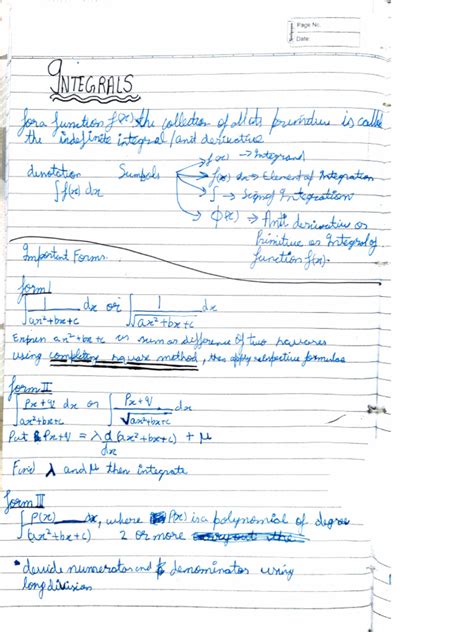 Page No.
Date
INTEGRALS
for a function f(x) the collection of all its primitive is called
the indefinite integral / anti derivative
denotation Symbols → f(x) → Integrand
∫f(x) dx → f(x) dx → Element of Integration
→ ∫ → Sign of Integration
→ Φ(x) → Anti derivative or
Primitive or Integral of
function f(x).
Important Forms
form I
∫ 1/(ax²+bx+c) dx or ∫ 1/√(ax²+bx+c) dx
Express ax²+bx+c as sum or difference of two squares
using completing square method, then apply respective formulas
form II
∫ (Px+q)/(ax²+bx+c) dx or ∫ (Px+q)/√(ax²+bx+c) dx
Put Px+q = λ d/dx (ax²+bx+c) + μ
Find λ and μ then integrate
form III
∫ P(x)/(ax²+bx+c) dx, where P(x) is a polynomial of degree
2 or more
• devide numerator and denominator using
long division